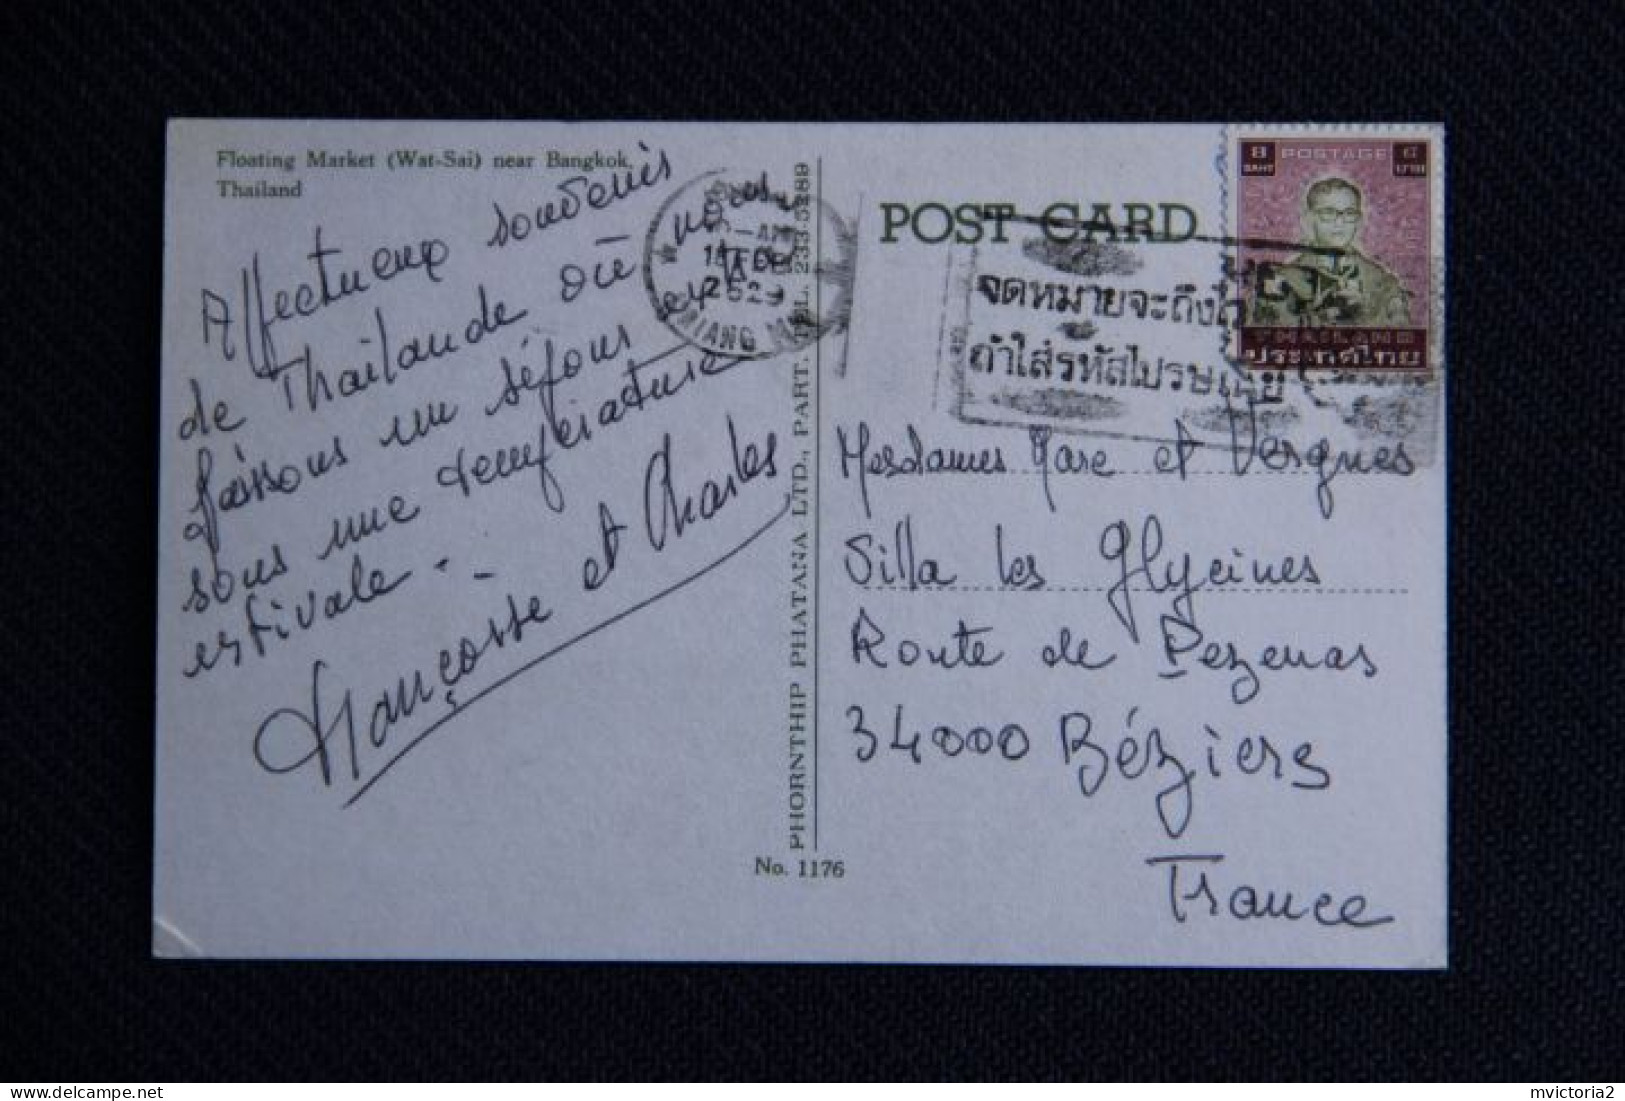 Floating Market (Wat-Sai) near Bangkok,
Thailand
Affectueux souvenis
de Thaïlande où nous
faisons un séjour en
sous une température
estivale.
Françoise et Charles
PHORNTHIP PHATANA LTD., PART. TEL. 233-5289
No. 1176
CHIANG MAI
FEB
2529
POST CARD
จดหมายจะถึง
ถ้าใส่รหัสไปรษณีย์
8 POSTAGE ๘
BAHT บาท
THAILAND
ประเทศไทย
Mesdames Mare et Vergnes
Silla les Glycines
Route de Pezenas
34000 Béziers
France
mvictoria2